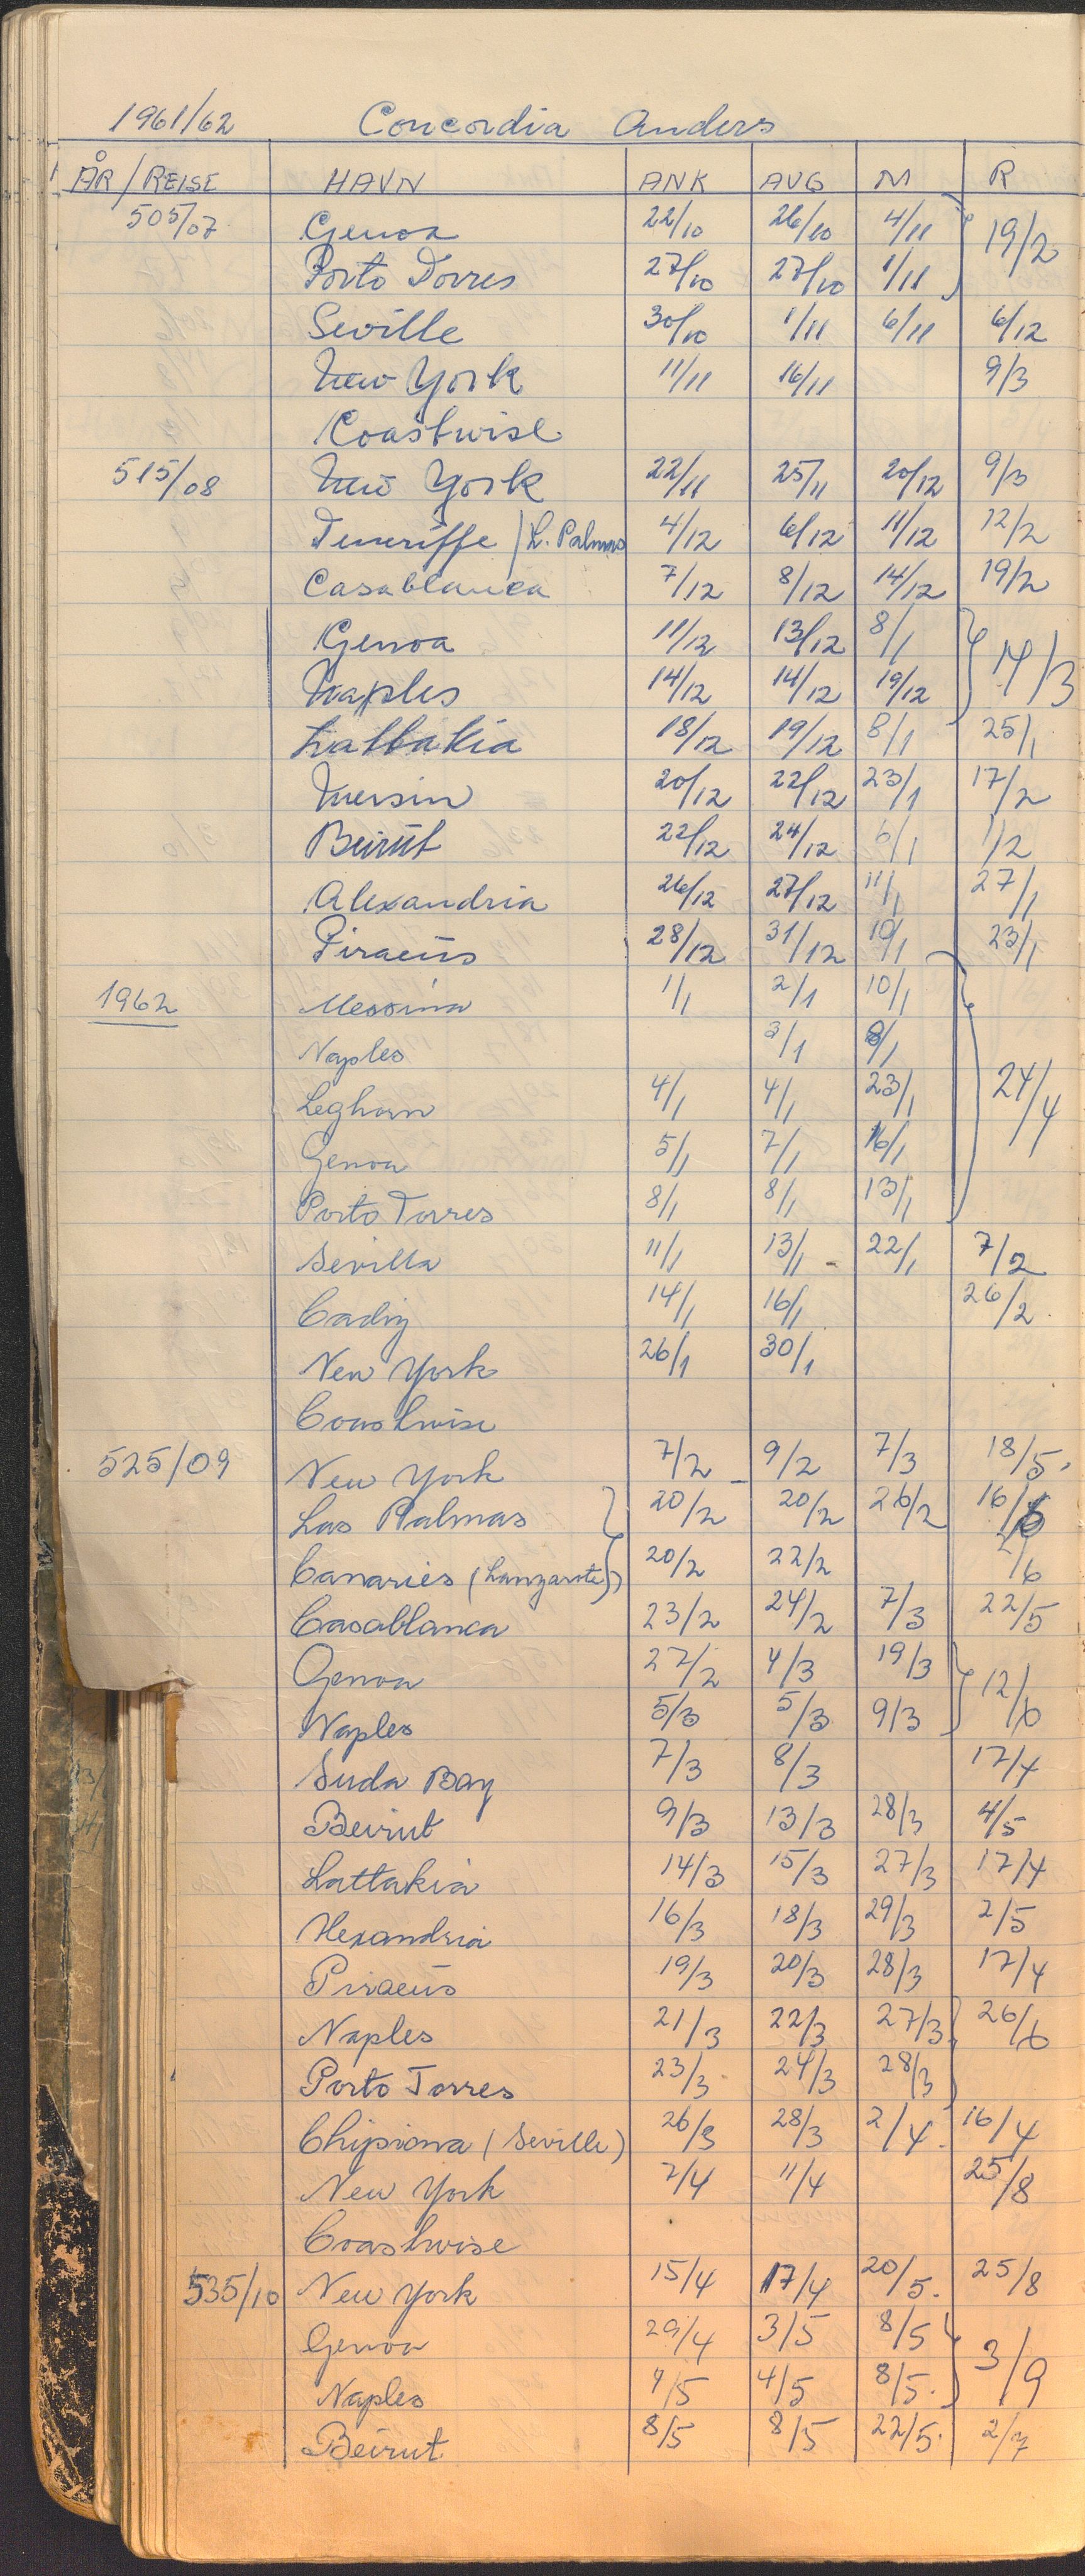 1961/62 Concordia Anders
ÅR/REISE HAVN ANK AVG M R
505/07 Genoa 22/10 26/10 4/11 19/2
Porto Torres 27/10 27/10 1/11
Seville 30/10 1/11 6/11 6/12
New York 11/11 16/11 9/3
Coastwise
515/08 New York 22/11 25/11 20/12 9/3
Teneriffe / L. Palmas 4/12 6/12 11/12 12/2
Casablanca 7/12 8/12 14/12 19/2
Genoa 11/12 13/12 8/1 14/3
Naples 14/12 14/12 19/12
Lattakia 18/12 19/12 8/1 25/1
Mersin 20/12 22/12 23/1 17/2
Beirut 22/12 24/12 6/1 1/2
Alexandria 26/12 27/12 11/1 27/1
Piraeus 28/12 31/12 10/1 23/1
1962 Messina 1/1 2/1 10/1
Naples 3/1 8/1
Leghorn 4/1 4/1 23/1 24/4
Genoa 5/1 7/1 16/1
Porto Torres 8/1 8/1 13/1
Sevilla 11/1 13/1 22/1 7/2
Cadiz 14/1 16/1 26/2
New York 26/1 30/1
Coastwise
525/09 New York 7/2 9/2 7/3 18/5
Las Palmas 20/2 20/2 26/2
Canaries (Lanzarote) 20/2 22/2
Casablanca 23/2 24/2 7/3 22/5
Genoa 27/2 4/3 19/3 12/6
Naples 5/3 5/3 9/3
Suda Bay 7/3 8/3 17/4
Beirut 9/3 13/3 28/3 4/5
Lattakia 14/3 15/3 27/3 17/4
Alexandria 16/3 18/3 29/3 2/5
Piraeus 19/3 20/3 28/3 17/4
Naples 21/3 22/3 27/3 26/6
Porto Torres 23/3 24/3 28/3
Chipiona (Seville) 26/3 28/3 2/4 16/4
New York 7/4 11/4 25/8
Coastwise
535/10 New York 15/4 17/4 20/5. 25/8
Genoa 29/4 3/5 8/5 3/9
Naples 4/5 4/5 8/5.
Beirut 8/5 8/5 22/5. 2/7